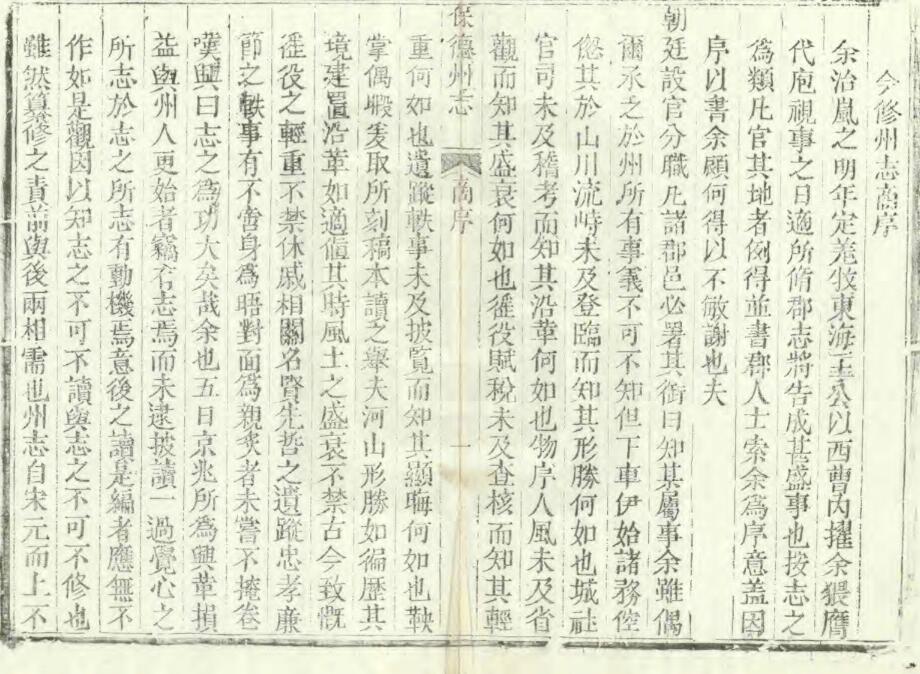 今修州志高序
余治嵐之明年定羌牧東海王公以西曹內擢余猥膺
代庖視事之日適所脩郡志將告成甚盛事也按志之
為類凡官其地者例得並書郡人士索余為序意盖因
序以書余顧何得以不敏謝也夫
朝廷設官分職凡諸郡邑必署其銜曰知某屬事余雖偶
爾承乏於州所有事義不可不知但下車伊始諸務倥
傯其於山川流峙未及登臨而知其形勝何如也城社
官司未及稽考而知其沿革何如也物序人風未及省
觀而知其盛衰何如也徭役賦稅未及查核而知其輕
保德州志 高序 一
重何如也遺蹤軼事未及披覽而知其顯晦何如也鞅
掌偶暇爰取所刻稿本讀之舉夫河山形勝如徧歷其
境建置沿革如適値其時風土之盛衰不禁古今致慨
徭役之輕重不禁休戚相關名賢先哲之遺蹤忠孝廉
節之軼事有不啻身為晤對面為親炙者未嘗不掩卷
嘆興曰志之為功大矣哉余也五日京兆所為興革損
益與州人更始者竊有志焉而未逮披讀一過覺心之
所志於志之所志有動機焉意後之讀是編者應無不
作如是觀因以知志之不可不讀與志之不可不修也
雖然纂修之責前與後兩相需也州志自宋元而上不